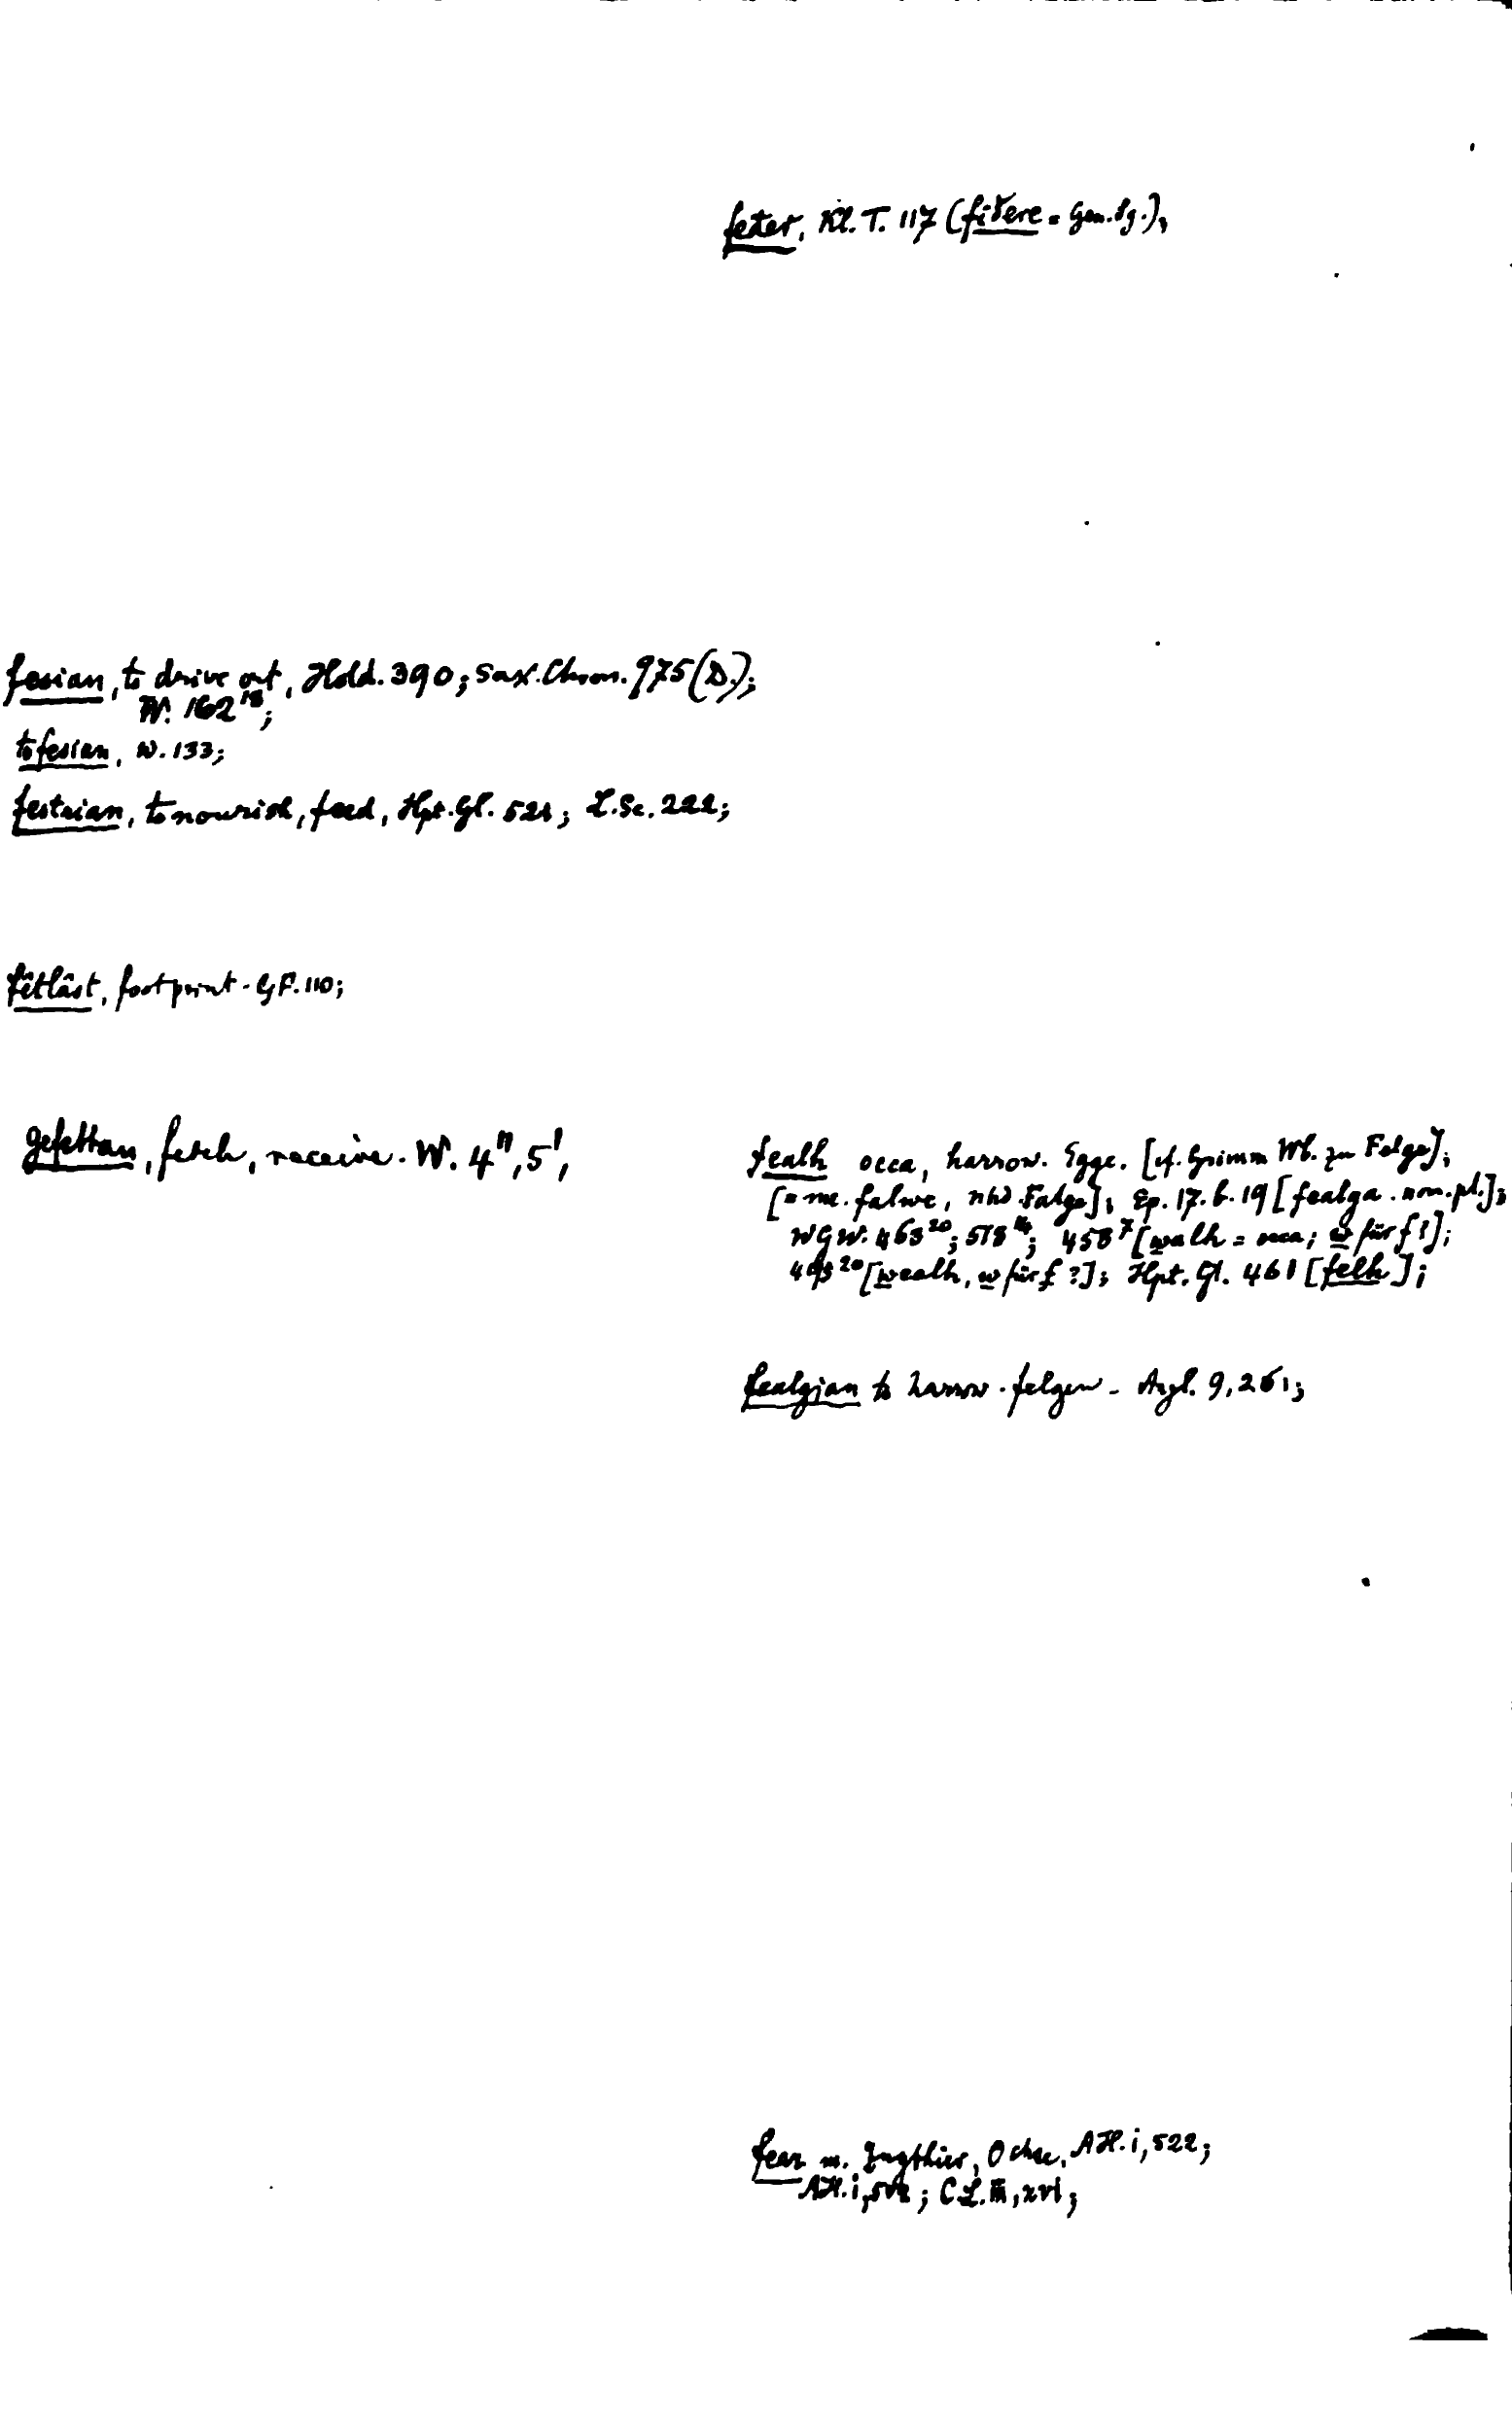 feter, Kl. T. 117 (fitere = Gen. Sg.);
fesian, to drive out, Hold. 390; Sax. Chron. 975 (D.);
W. 162¹⁸;
tofesian, W. 133;
festrian, to nourish, feed, Hpt. Gl. 521; L. Sc. 222;
fêtlâst, footprint - GF. 110;
gefettan, fetch, receive. W. 4¹¹, 5¹,
fealh occa, harrow. Egge. [cf. Grimm Wb. zu Felge];
[= me. falwe, nhd. Falge]; Ep. 17. b. 19 [fealga. nom. pl.];
WGW. 463²⁰; 518¹⁴; 458⁷ [walh = occa; w für f?];
495²⁰ [wealh, w für f?]; Hpt. Gl. 461 [felh];
fealgian to harrow. felgen - Angl. 9, 261;
fear m. Zugthier, Ochse, AH. i, 522;
AH. i, CL. III, xvi;